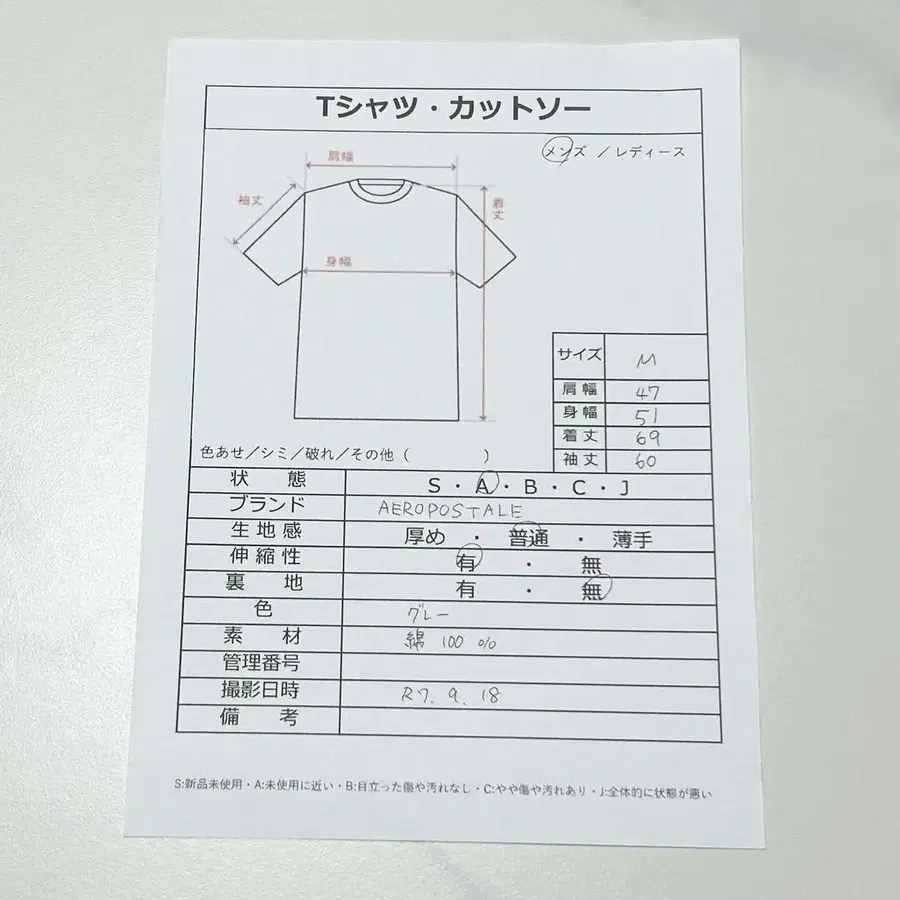 Tシャツ・カットソー
メンズ / レディース
肩幅
袖丈
着丈
身幅
サイズ M
肩幅 47
身幅 51
着丈 69
袖丈 60
色あせ/シミ/破れ/その他( )
状態 S・A・B・C・J
ブランド AEROPOSTALE
生地感 厚め ・ 普通 ・ 薄手
伸縮性 有 ・ 無
裏地 有 ・ 無
色 グレー
素材 綿 100 %
管理番号
撮影日時 R7. 9. 18
備考
S:新品未使用・A:未使用に近い・B:目立った傷や汚れなし・C:やや傷や汚れあり・J:全体的に状態が悪い